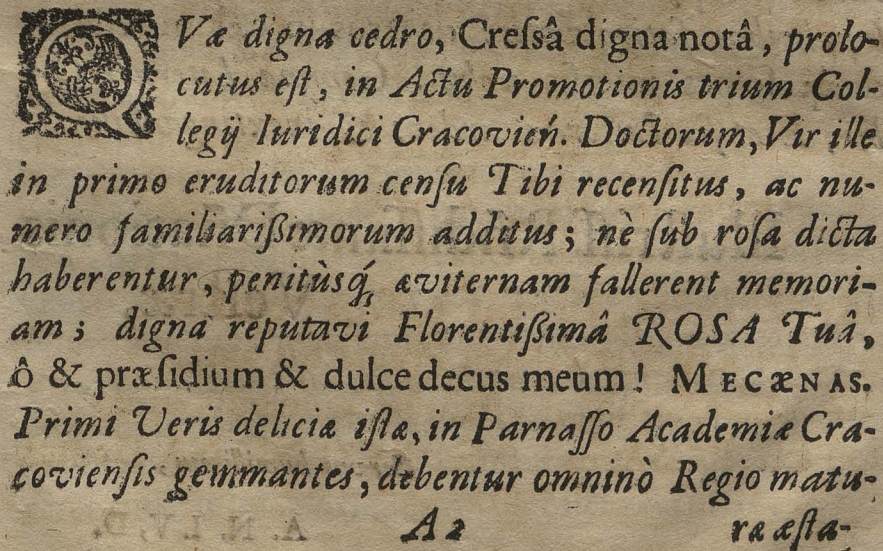 QVæ digna cedro, Cresſâ digna notâ, prolo-
cutus eſt, in Actu Promotionis trium Col-
legij Iuridici Cracovień. Doctorum, Vir ille
in primo eruditorum cenſu Tibi recenſitus, ac nu-
mero familiarißimorum additus; nè ſub roſa dicta
haberentur, penitùsq́; æviternam fallerent memori-
am; digna reputavi Florentißimâ ROSA Tuâ,
ô & præſidium & dulce decus meum! MECÆNAS.
Primi Veris deliciæ iſtæ, in Parnaſſo Academiæ Cra-
covienſis gemmantes, debentur omninò Regio matu-
A 2 ræ æſta-